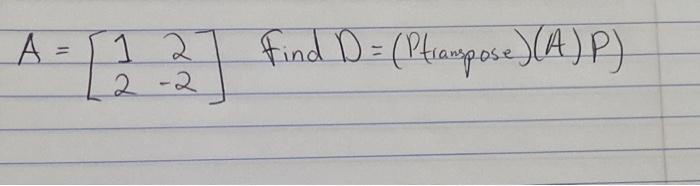 A = [1 2 2 -2] find D = (Ptranspose)(A)P)